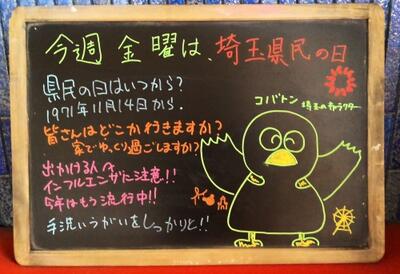 今週 金曜は、埼玉県民の日
県民の日はいつから?
1971年11月14日から.
皆さんはどこか行きますか?
家でゆっくり過ごしますか?
出かける人は
インフルエンザに注意!!
今年はもう流行中!!
手洗いうがいをしっかりと!!
コバトン
埼玉のキャラクター